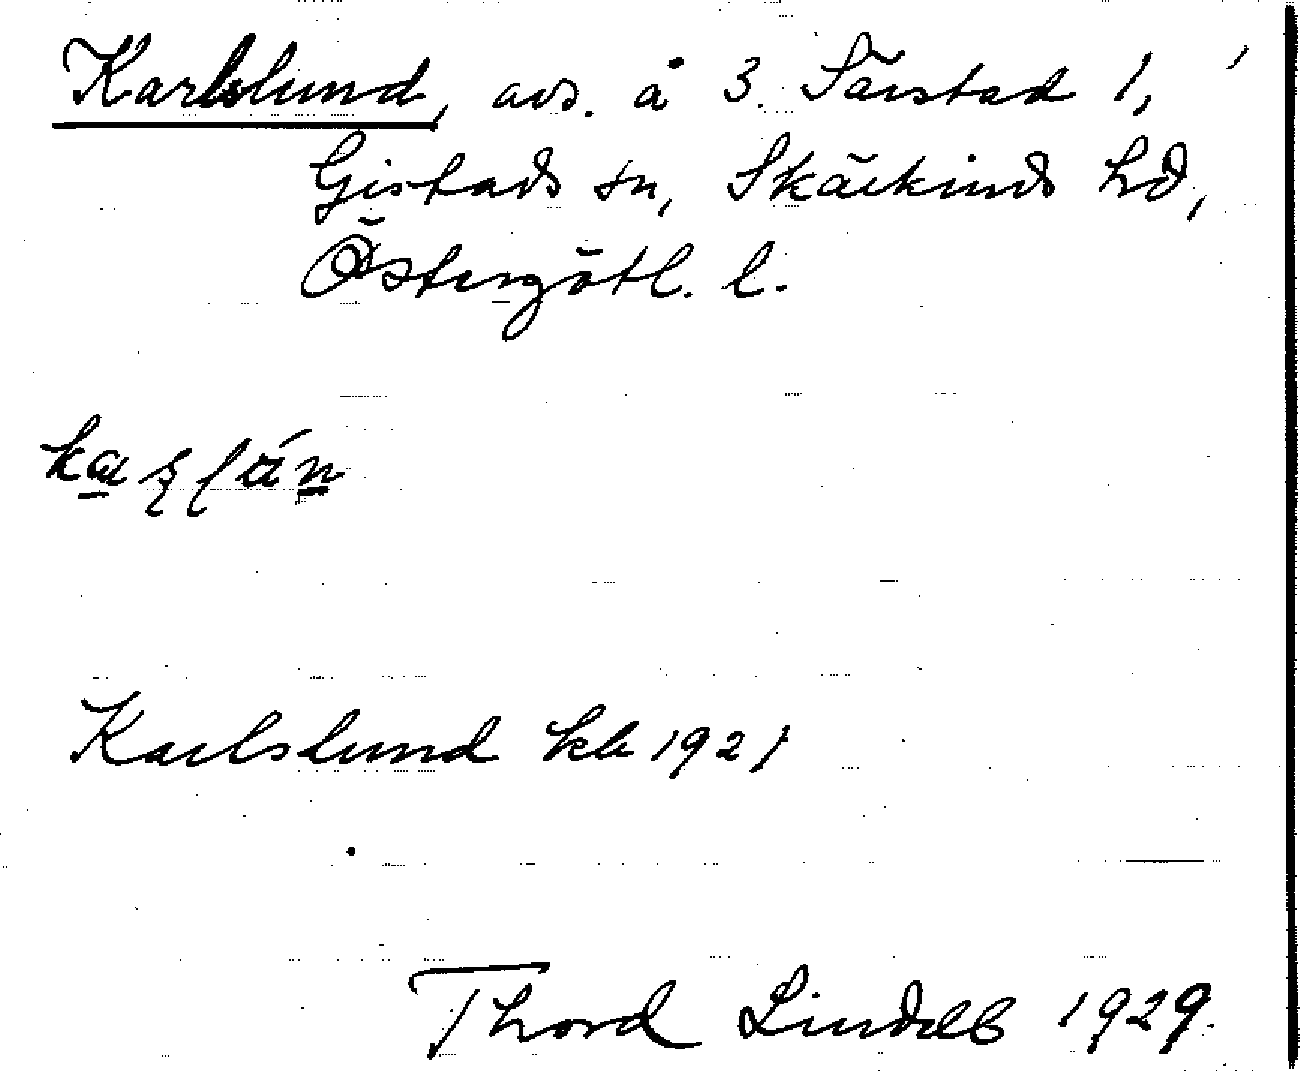 Karlslund, avs. å 3. Tärstad 1,
Gistads sn, Skärkinds hd,
Östergötl. l.
Karlslund kb 1921
Thord Lindell 1929.